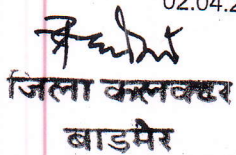 02.04.2
जिला कलक्टर
बाडमेर